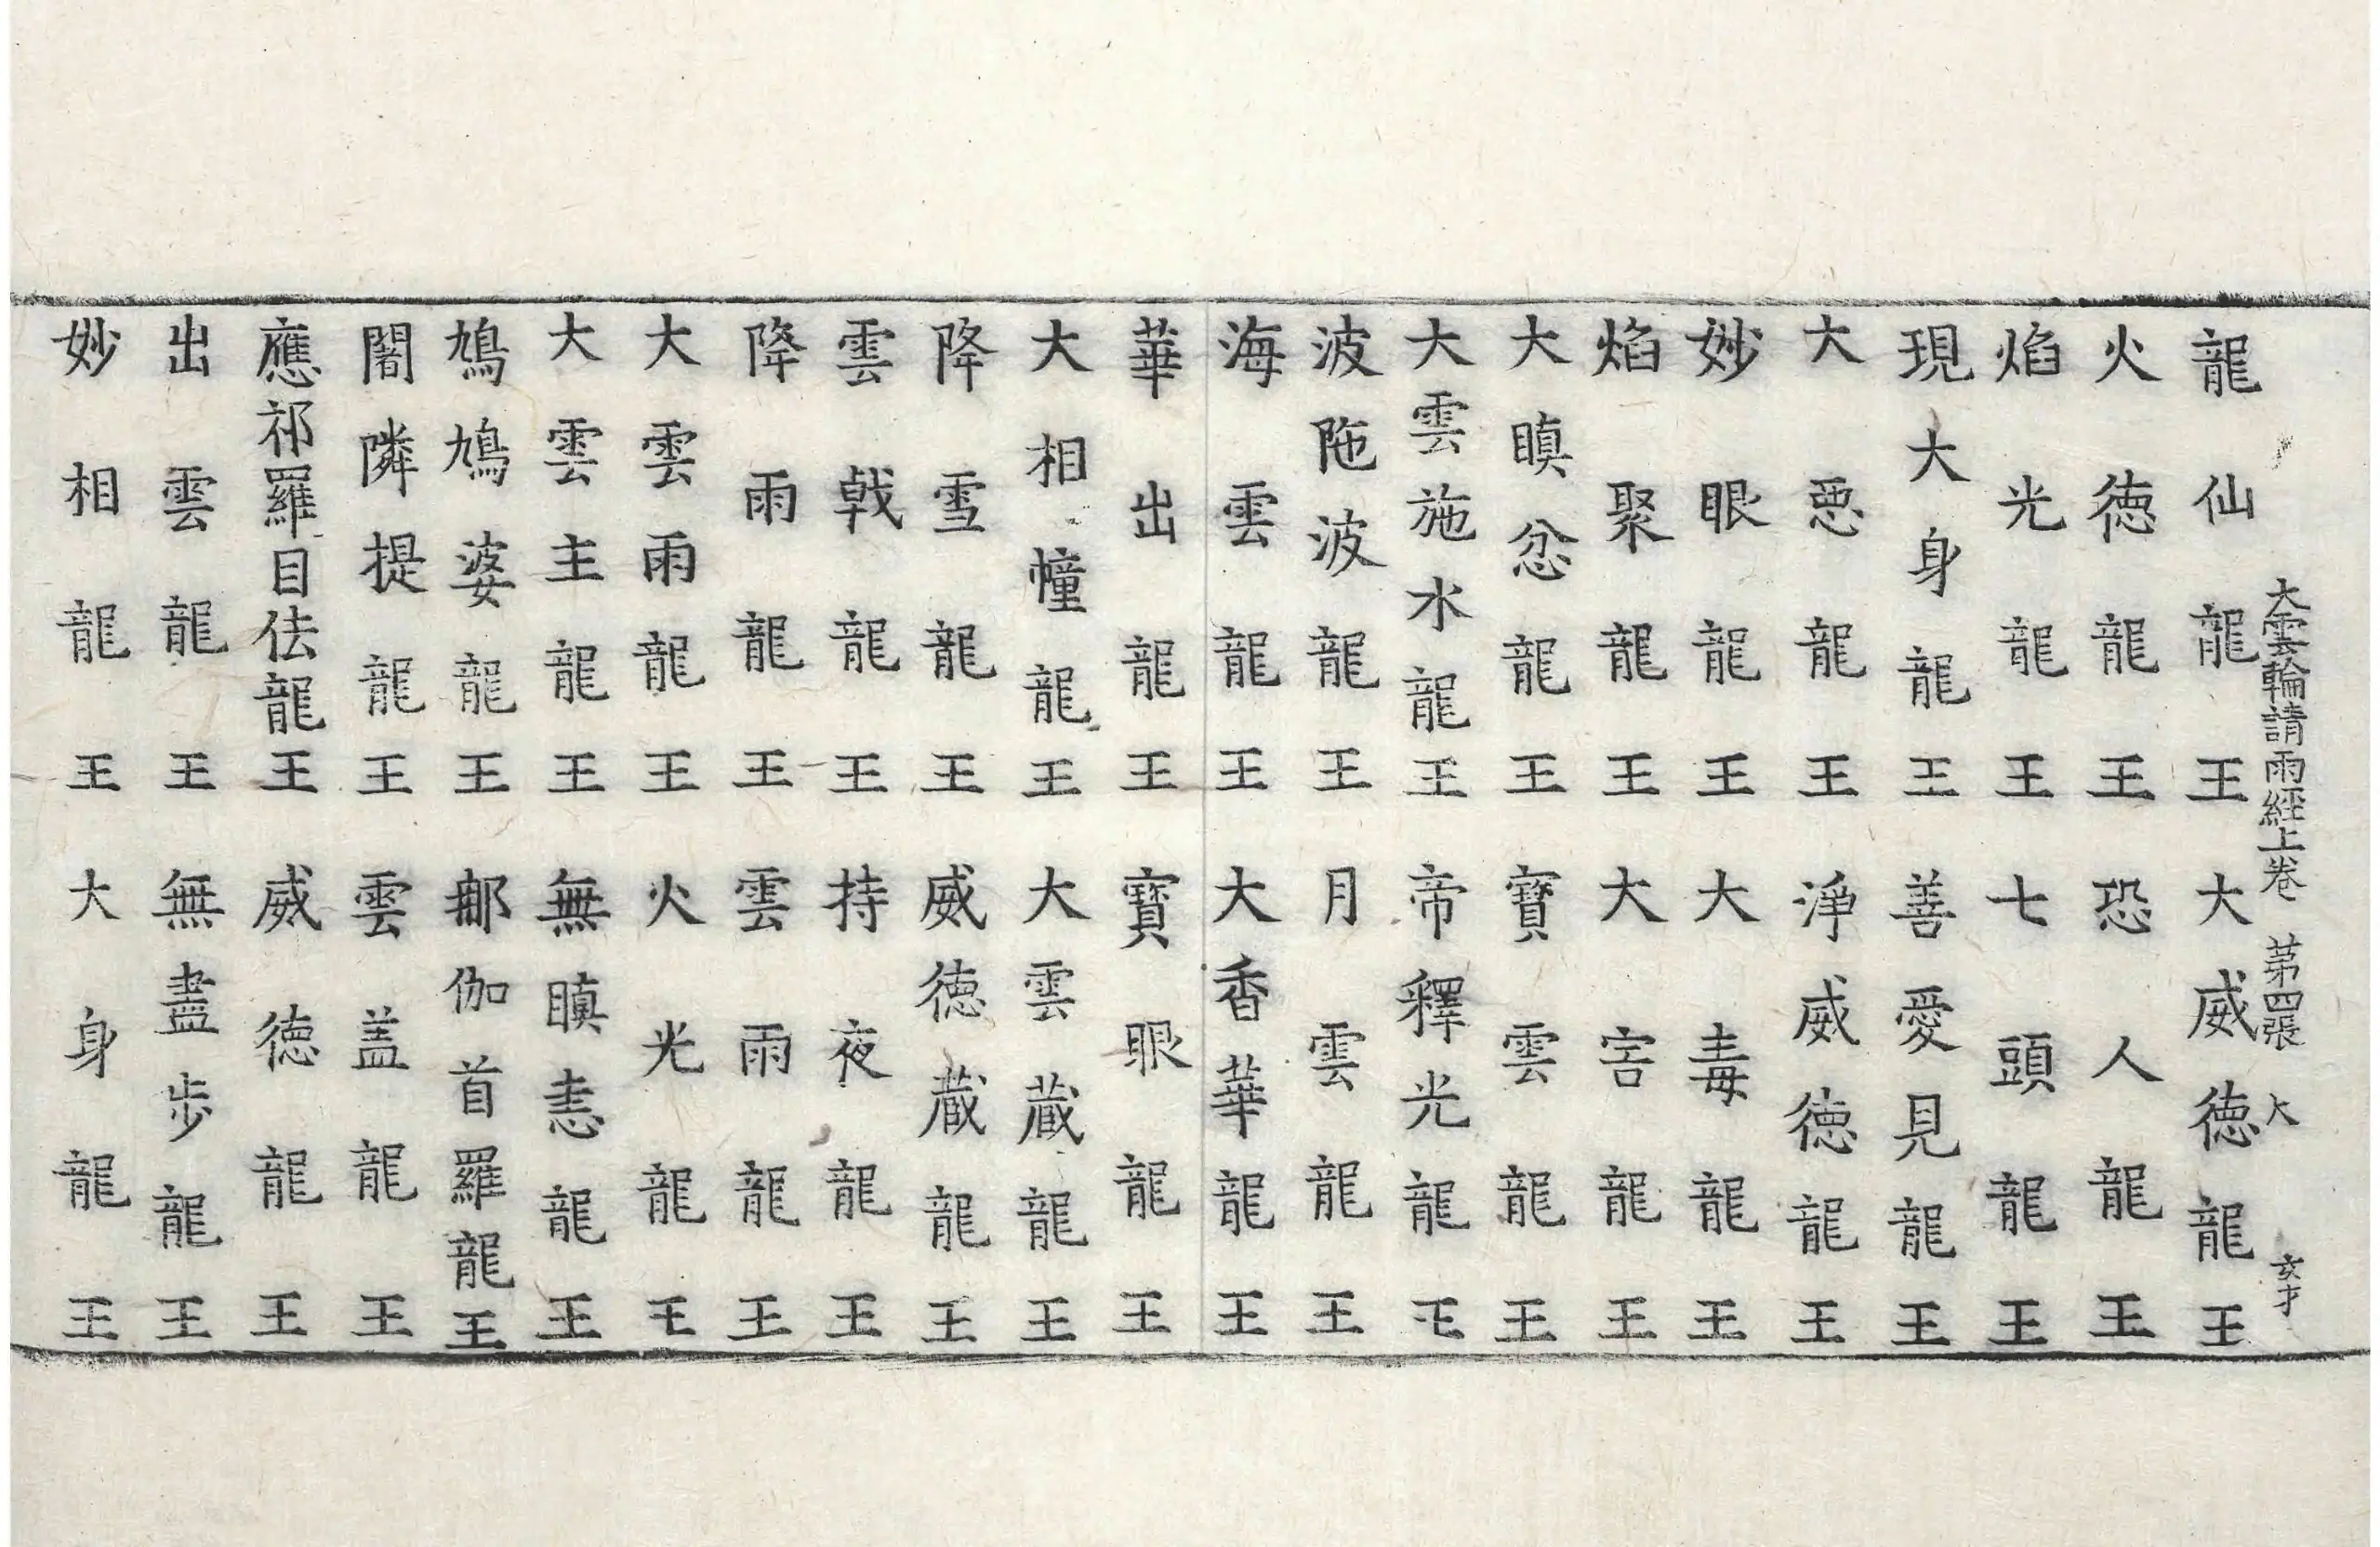 大雲輪請雨經上卷　苐四張　大　玄才
龍仙龍王　大威徳龍王
火徳龍王　恐人龍王
焰光龍王　七頭龍王
現大身龍王　善愛見龍王
大惡龍王　淨威徳龍王
妙眼龍王　大毒龍王
焰聚龍王　大害龍王
大瞋忿龍王　寶雲龍王
大雲施水龍王　帝釋光龍王
波陁波龍王　月雲龍王
海雲龍王　大香華龍王
華出龍王　寶眼龍王
大相幢龍王　大雲蔵龍王
降雪龍王　威徳蔵龍王
雲戟龍王　持夜龍王
降雨龍王　雲雨龍王
大雲雨龍王　火光龍王
大雲主龍王　無瞋恚龍王
鳩鳩婆龍王　那伽首羅龍王
闍隣提龍王　雲盖龍王
應祁羅目佉龍王　威徳龍王
出雲龍王　無盡步龍王
妙相龍王　大身龍王